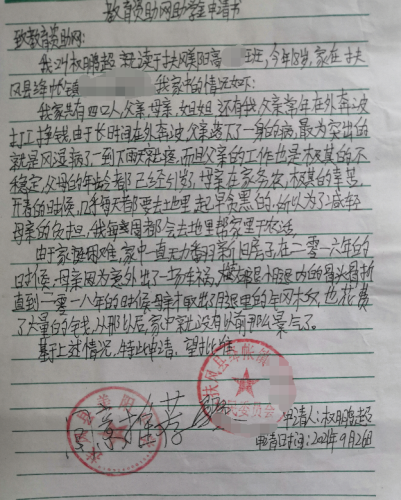 教育资助网助学申请书
致教育资助网:
我叫权鹏超 就读于扶风县阳高 班班,今年18岁,家在扶
风县绛帐镇 我家书的情况如下:
我家共有四口人,父亲,母亲,姐姐还有我,父亲常年在外奔波
打工挣钱,由于长时间在外奔波,父亲落下了一身的病,最为突出的
就是风湿病了,到下雨天就疼,而且父亲的工作也是极其的不
稳定,父母的年龄都已经 岁了,母亲在家务农,极其的辛苦,
开春的时候,几乎每天都要去地里起早贪黑的,所以为了减轻
母亲的负担,我每周都会去地里帮家里干农活。
由于家庭困难,家中一直无力翻新旧房子,在二零一六年的
时候,母亲因为意外出了一场车祸, 腿内的骨头骨折
直到二零一八年的时候母亲才取出了腿里的 ,也花费
了大量的金钱,从那以后,家中就没有以前那么景气了。
基于上述情况,特此申请,望批准
情况属 推荐
扶风县绛帐镇
委员会
申请人:权鹏超
申请日时间:2024年9月26日